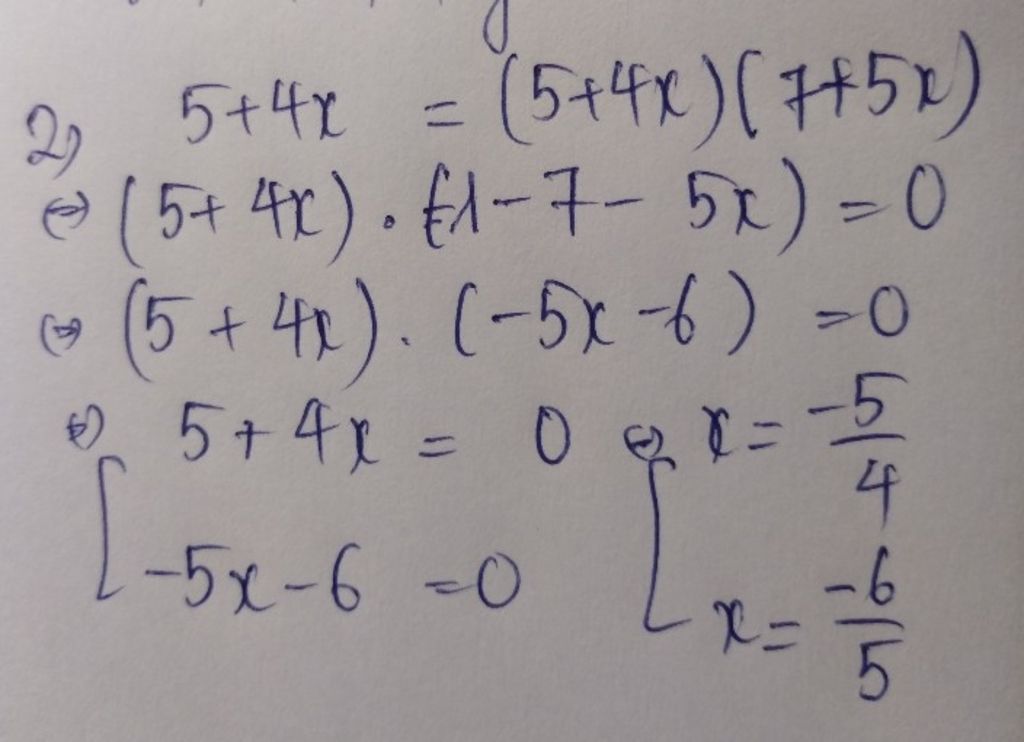 2) 5+4x = (5+4x)(7+5x)
⇔ (5+4x).(1-7-5x)=0
⇔ (5+4x).(-5x-6)=0
⇔ [ 5+4x = 0 ⇔ [ x = -5/4
-5x-6 =0 x = -6/5